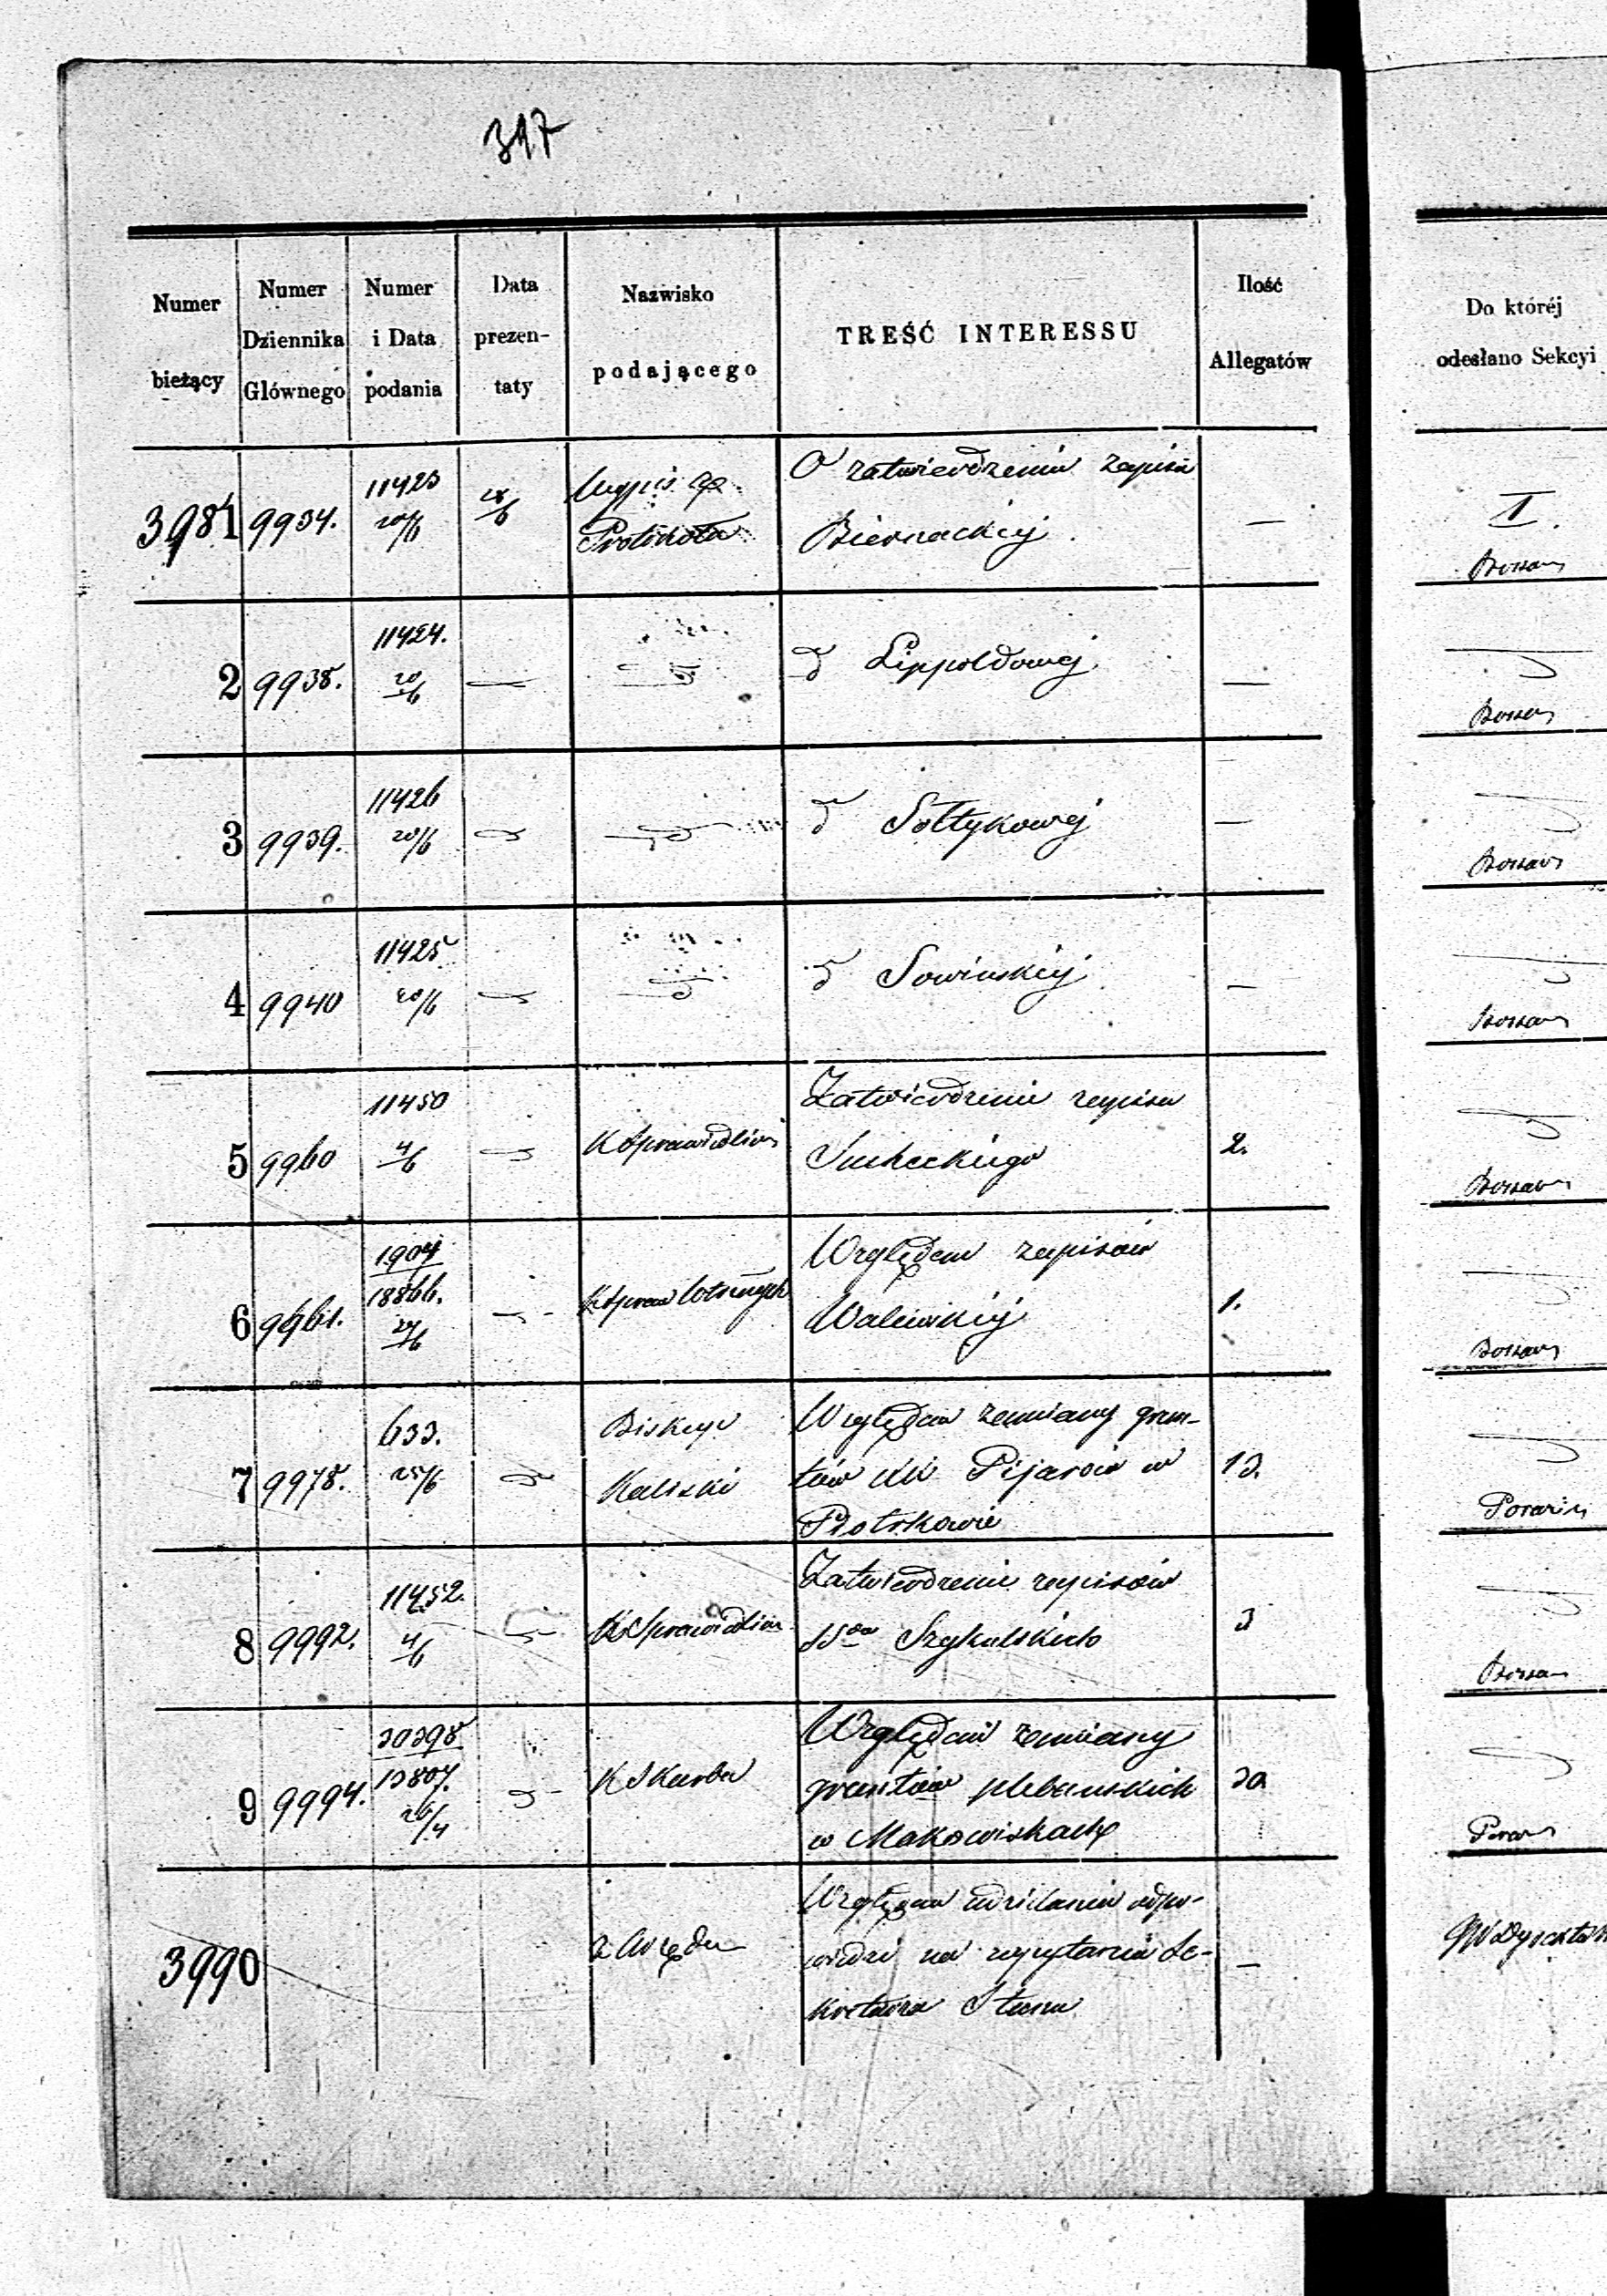 397
Numer bieżący
Numer Dziennika Głównego
Numer i Data podania
Data prezen-taty
Nazwisko podającego
TREŚĆ INTERESSU
Ilość Allegatów
Do któréj odesłano Sekcyi
3981 9934. 11423 20/6 28/6 Wypis z Protokołu O zatwierdzenie zapisu — I.
Biernackiej
2 9938. 11424. 20/6 — d Lippoldowej —
3 9939. 11426 20/6 d Sołtykowej —
4 9940 11425 20/6 d Sowińskiej —
5 9960 11450 4/6 K Sprawiedliwi Zatwierdzenie zapisu 2.
Sucheckiego
6 9961. 1904 18866. 24/6 K Spraw Wewnętrznych Względem zapisów 1.
Walewskiej
7 9978. 633. 25/6 Biskup Kaliski Względem zamiany grun-
tów XX Pijarów w 13.
Piotrkowie
8 9992. 11452. 4/6 K Sprawiedliw Zatwierdzenie zapisów 3
Szykulskich
9 9994. 30398 13804. 26/4 K Skarbu Względem zamiany
gruntów plebańskich 30.
w Makowiskach
3990 z Urzędu Względem udzielania odpo-
wiedzi na zapytania Se- —
kretarza Stanu